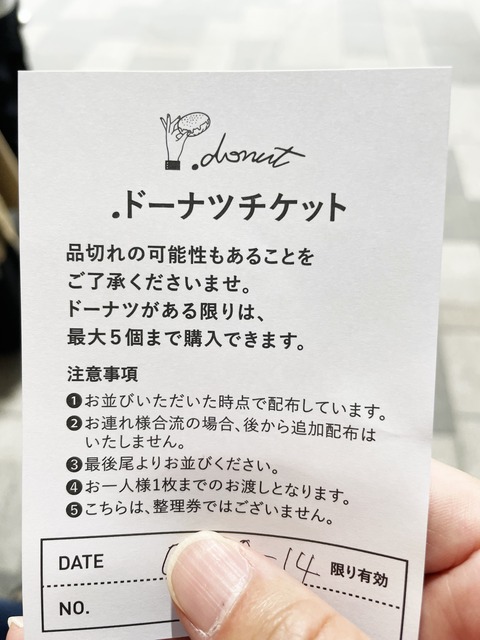 .donut
.ドーナツチケット
品切れの可能性もあることを
ご了承くださいませ。
ドーナツがある限りは、
最大5個まで購入できます。
注意事項
❶お並びいただいた時点で配布しています。
❷お連れ様合流の場合、後から追加配布は
いたしません。
❸最後尾よりお並びください。
❹お一人様1枚までのお渡しとなります。
❺こちらは、整理券ではございません。
DATE -14 限り有効
NO.